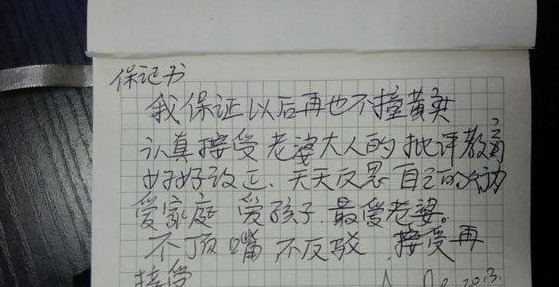 保证书
我保证以后再也不撞黄实
认真接受老婆大人的批评教育
好好改正、天天反思自己的行动
爱家庭 爱孩子 最爱老婆。
不顶嘴 不反驳 接受再
接受